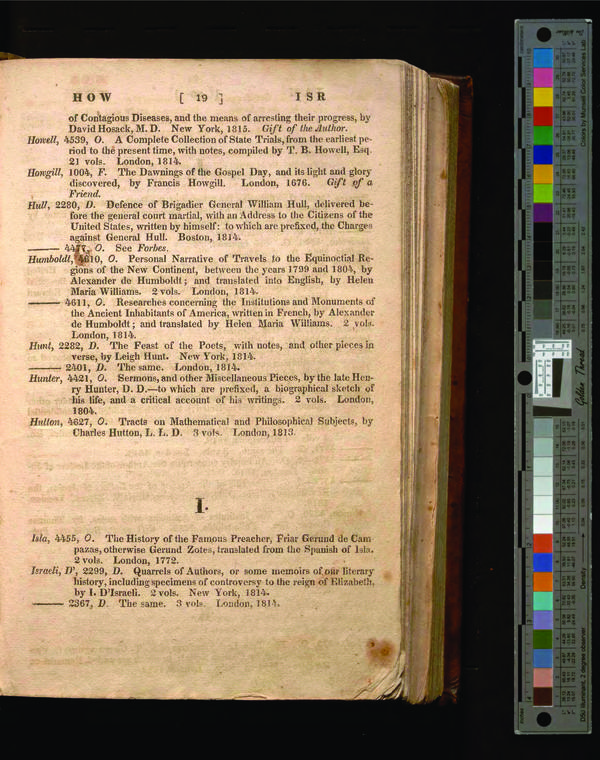 HOW [ 19 ] ISR
of Contagious Diseases, and the means of arresting their progress, by
David Hosack, M. D. New York, 1815. Gift of the Author.
Howell, 4539, O. A Complete Collection of State Trials, from the earliest pe-
riod to the present time, with notes, compiled by T. B. Howell, Esq.
21 vols. London, 1814.
Howgill, 1004, F. The Dawnings of the Gospel Day, and its light and glory
discovered, by Francis Howgill. London, 1676. Gift of a
Friend.
Hull, 2280, D. Defence of Brigadier General William Hull, delivered be-
fore the general court martial, with an Address to the Citizens of the
United States, written by himself: to which are prefixed, the Charges
against General Hull. Boston, 1814.
——— 4477, O. See Forbes.
Humboldt, 4610, O. Personal Narrative of Travels to the Equinoctial Re-
gions of the New Continent, between the years 1799 and 1804, by
Alexander de Humboldt; and translated into English, by Helen
Maria Williams. 2 vols. London, 1814.
——— 4611, O. Researches concerning the Institutions and Monuments of
the Ancient Inhabitants of America, written in French, by Alexander
de Humboldt; and translated by Helen Maria Williams. 2 vols.
London, 1814.
Hunt, 2282, D. The Feast of the Poets, with notes, and other pieces in
verse, by Leigh Hunt. New York, 1814.
——— 2401, D. The same. London, 1814.
Hunter, 4421, O. Sermons, and other Miscellaneous Pieces, by the late Hen-
ry Hunter, D. D.—to which are prefixed, a biographical sketch of
his life, and a critical account of his writings. 2 vols. London,
1804.
Hutton, 4627, O. Tracts on Mathematical and Philosophical Subjects, by
Charles Hutton, L. L. D. 3 vols. London, 1813.
I.
Isla, 4455, O. The History of the Famous Preacher, Friar Gerund de Cam
pazas, otherwise Gerund Zotes, translated from the Spanish of Isla.
2 vols. London, 1772.
Israeli, D', 2299, D. Quarrels of Authors, or some memoirs of our literary
history, including specimens of controversy to the reign of Elizabeth,
by I. D'Israeli. 2 vols. New York, 1814.
——— 2367, D. The same. 3 vols. London, 1814.
Colors by Munsell Color Services Lab
Golden Thread
Density
D50 Illuminant, 2 degree observer